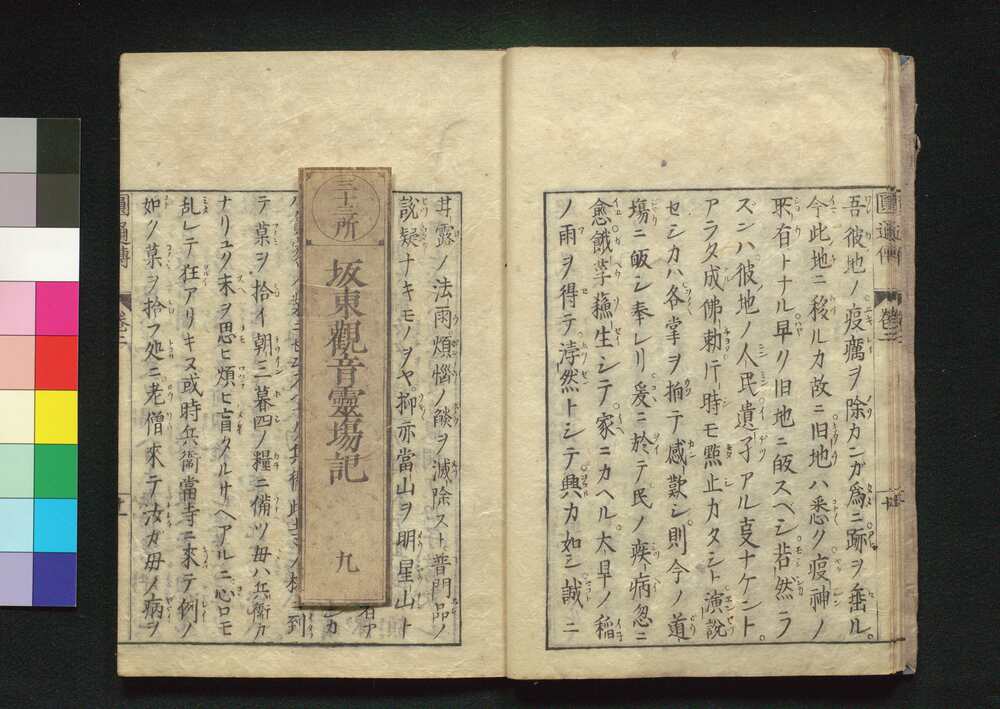 圓通傳
卷三
吾彼地ノ疫癘ヲ除カンガ爲ニ跡ヲ垂ル。
今此地ニ移ルカ故ニ旧地ハ悉ク疫神ノ
所有トナル早ク旧地ニ皈スベシ若然ラ
ズンハ彼地ノ人民遺子アル事ナケント。
アラタ成佛勅ニテ時モ黙止カタシト演說
セシカハ各掌ヲ拍テ感歎シ則今ノ道
場ニ皈シ奉レリ爰ニ於テ民ノ疾病忽ニ
愈餓莩穐生シテ家ニカヘル。大旱ノ稲
ノ雨ヲ得テ浡然トシテ興カ如シ誠ニ
甘露ノ法雨煩惱ノ燄ヲ滅除スト普門品ノ
說疑ナキモノヲヤ抑亦當山ヲ明星山ト
三十三所
坂東觀音靈塲記
九
テ菓ヲ拾イ朝三暮四ノ糧ニ備ツ母ハ兵衛カ
ナリユク末ヲ思ヒ煩ヒ盲タルサヘアルニ心モ
乱レテ狂アリキヌ或時兵衞當寺ニ來テ例ノ
如ク菓ヲ拾フ処ニ老僧來テ汝カ母ノ病ヲ
圓通傳
卷三